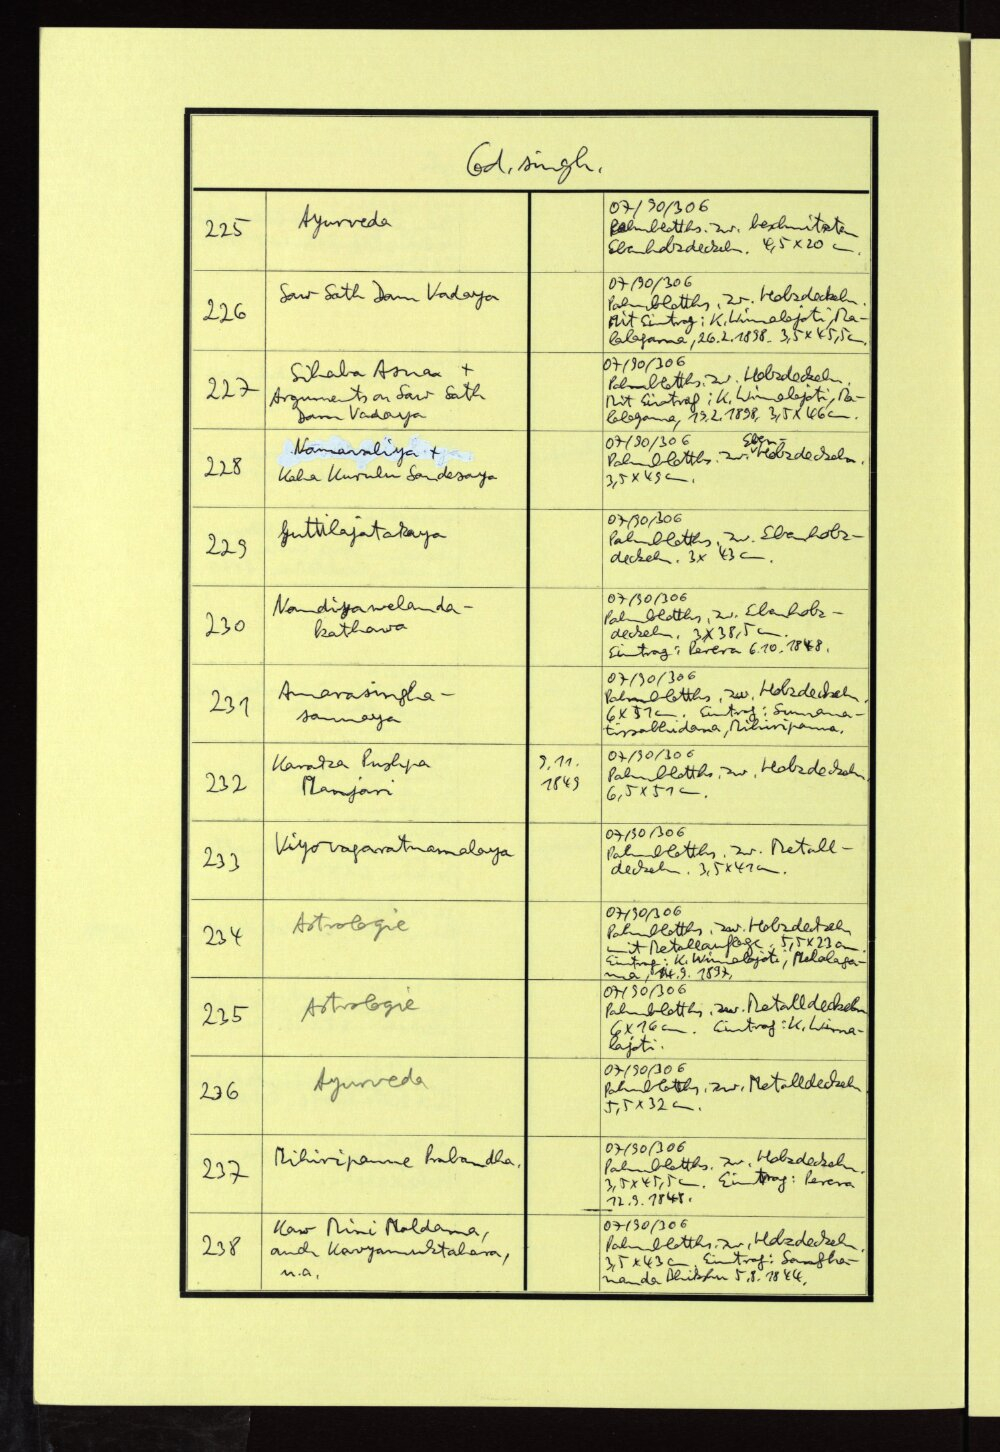 Cod. singh.
225
Ayurveda
07/90/306
Palmblatths. zw. beschnitzten
Ebenholzdeckeln. 4,5x20 cm.
226
Saw Sath Dam Vadaya
07/90/306
Palmblatths. zw. Holzdeckeln.
Mit Eintrag: K. Wimalajoti, Ma-
lalagama, 26.2.1898. 3,5x45,5cm.
227
Sihaba Asnaa +
Arguments on Saw Sath
Dam Vadaya
07/90/306
Palmblatths. zw. Holzdeckeln.
Mit Eintrag: K. Wimalajoti, Ma-
lalagama, 19.2.1898, 3,5x46cm.
228
Namavaliya +
Kaha Kurulu Sandesaya
07/90/306
Palmblatths. zw. Eben-Holzdeckeln.
3,5x49cm.
229
Guttilajatakaya
07/90/306
Palmblatths. zw. Ebenholz-
deckeln. 3x 43cm.
230
Nandiyawelanda-
kathawa
07/90/306
Palmblatths. zw. Ebenholz-
deckeln. 3x38,5cm.
Eintrag: Perera 6.10.1848.
231
Amarasingha-
sannaya
07/90/306
Palmblatths. zw. Holzdeckeln
6x51cm. Eintrag: Sumana-
tissabhidana, Mihiripanna.
232
Karaka Pushpa
Manjari
9.11.
1849
07/90/306
Palmblatths. zw. Holzdeckeln.
6,5x51cm.
233
Viyovagaratnamalaya
07/90/306
Palmblatths. zw. Metall-
deckeln. 3,5x41cm.
234
Astrologie
07/90/306
Palmblatths. zw. Holzdeckeln
mit Metallauflage. 5,5x23cm.
Eintrag: K. Wimalajoti, Malalaga-
ma, 14.9.1897.
235
Astrologie
07/90/306
Palmblatths. zw. Metalldeckeln
6x16cm. Eintrag: K. Wima-
lajoti.
236
Ayurveda
07/90/306
Palmblatths. zw. Metalldeckeln.
5,5x32cm.
237
Mihiripanne Prabandha.
07/90/306
Palmblatths. zw. Holzdeckeln.
3,5x45,5cm. Eintrag: Perera
12.9.1848.
238
Kaw Mini Maldama,
auch Kavyamuktahara,
u.a.
07/90/306
Palmblatths. zw. Holzdeckeln.
3,5x43cm. Eintrag: Sangha-
nanda Bhikshu 5.8.1844.